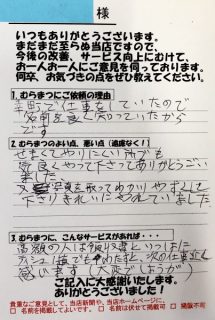 様
いつもありがとうございます。
まだまだ至らぬ当店ですので、
今後の改善、サービス向上にむけて、
お一人お一人にご意見を伺っております。
何卒、お気づきの点をぜひ教えてください。
1.むらまつにご依頼の理由
で仕事をしていたので
名前を良く知っていたから
です
2.むらまつのよい点、悪い点(遠慮なく!)
せまくてやりにくい所も
手良くやって下さってありがとうござい
ました
又 写真を取ってわかりやすくして
下さりきれいにやって下さいました
3.むらまつに、こんなサービスがあれば・・・
高齢の人は
思います(大変でしょうが)
ご記入に大感謝いたします。
ありがとうございました!
貴重なご意見として、当店新聞や、当店ホームページに、
□ 名前を掲載してよいです。 □ 名前は伏せて掲載可 □ 掲載不可